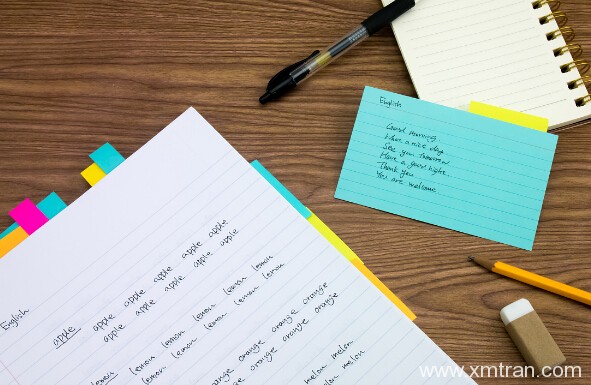 English
Good Morning
Have a nice day
See you tomorrow
Have a good night
Thank you
You are welcome
English
apple apple apple apple apple apple
apple apple apple apple apple
lemon lemon lemon lemon lemon lemon
lemon lemon lemon lemon lemon
orange orange orange
orange orange orange orange
melon melon
melon
www.xmtran.com